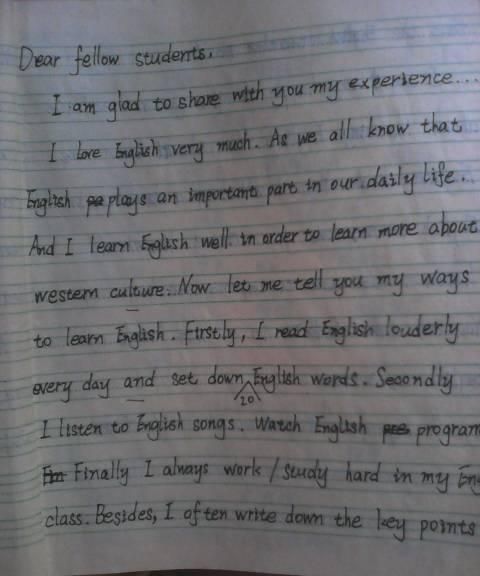 Dear fellow students.
I am glad to share with you my experience...
I love English very much. As we all know that
English plays an important part in our daily life.
And I learn English well in order to learn more about
western culture. Now let me tell you my ways
to learn English. Firstly, I read English louderly
every day and set down 20 English words. Secondly
I listen to English songs. Watch English program
Finally I always work / study hard in my En
class. Besides, I often write down the key points